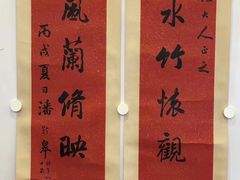 大人正之
水竹懷觀
風蘭脩映
丙戌夏日潘齡皋